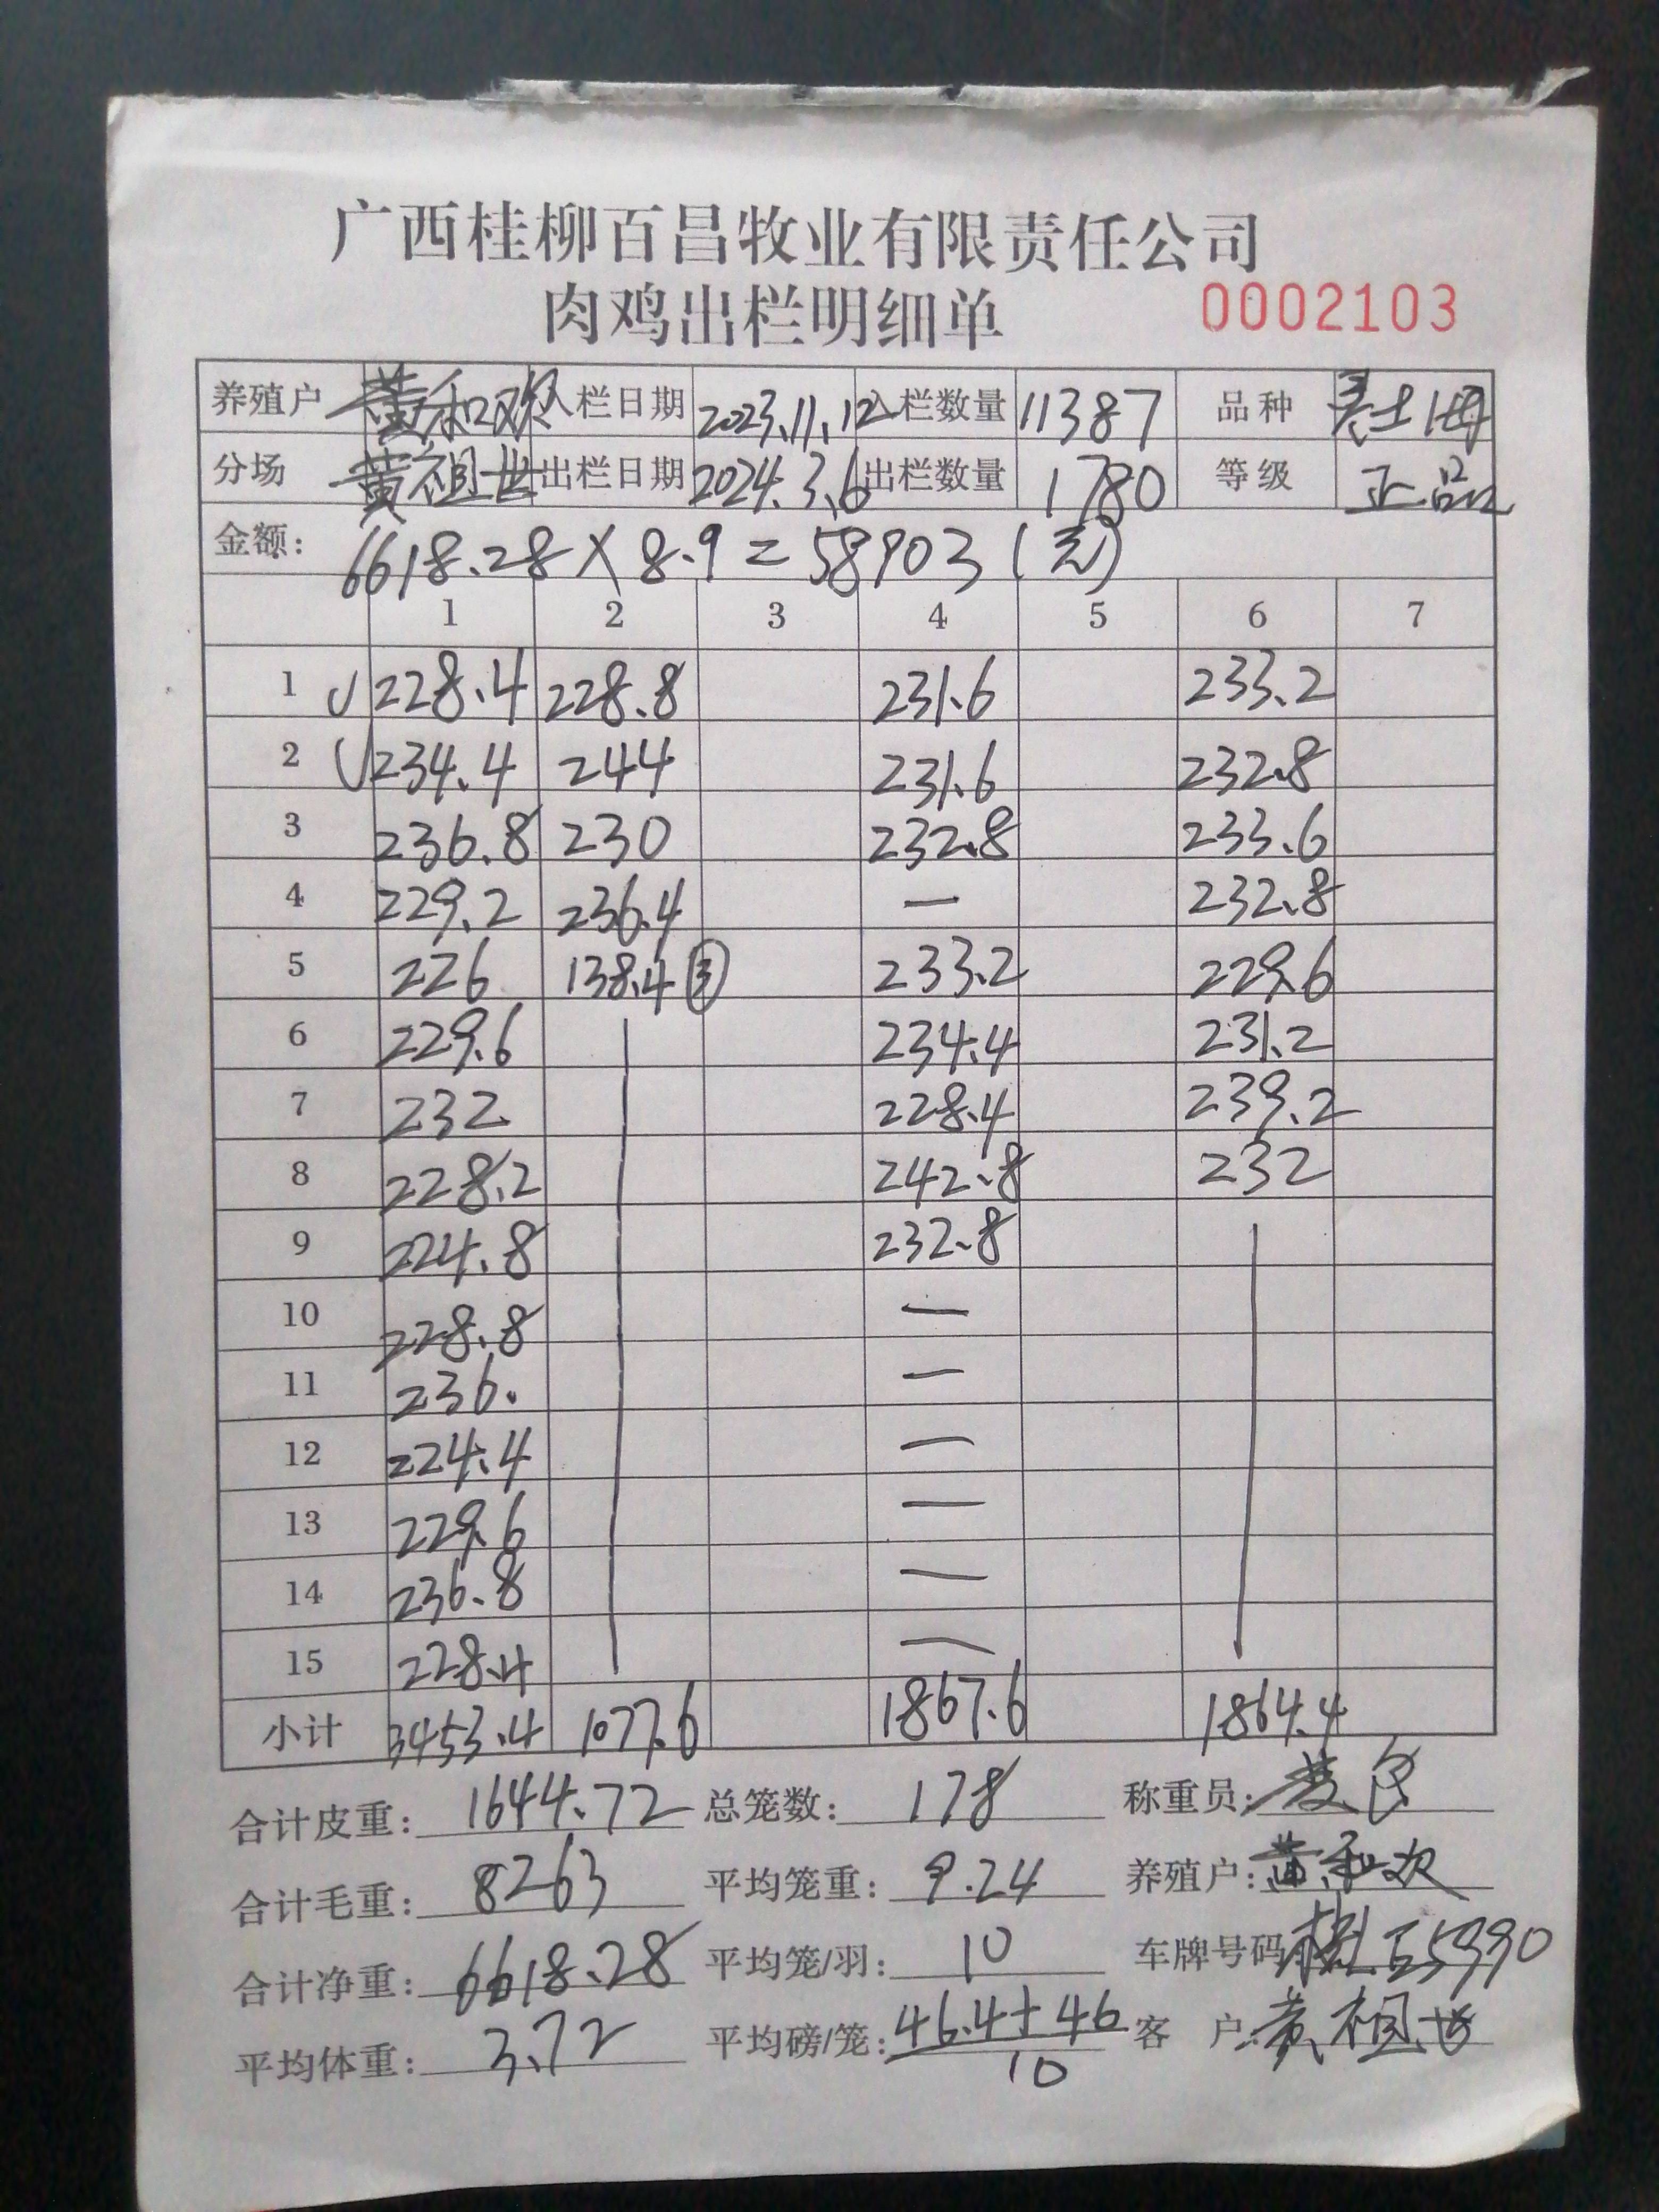 广西桂柳百昌牧业有限责任公司
肉鸡出栏明细单 0002103
养殖户 黄和欢 入栏日期 2023.11.12 入栏数量 11387 品种 土母
分场 黄祖世 出栏日期 2024.3.6 出栏数量 1780 等级 正品
金额: 6618.28×8.9=58903(元)
1 2 3 4 5 6 7
1 228.4 228.8 231.6 233.2
2 234.4 244 231.6 232.8
3 236.8 230 232.8 233.6
4 229.2 236.4 — 232.8
5 226 138.4 ③ 233.2 229.6
6 229.6 234.4 231.2
7 232 228.4 239.2
8 228.2 242.8 232
9 224.8 232.8
10 228.8 —
11 236. —
12 224.4 —
13 229.6 —
14 236.8 —
15 228.4 —
小计 3453.4 1077.6 1867.6 1864.4
合计皮重: 1644.72 总笼数: 178 称重员:
合计毛重: 8263 平均笼重: 9.24 养殖户: 黄和欢
合计净重: 6618.28 平均笼/羽: 10 车牌号码: 55990
平均体重: 3.72 平均磅/笼: 46.4+46 客 户: 黄祖世
10